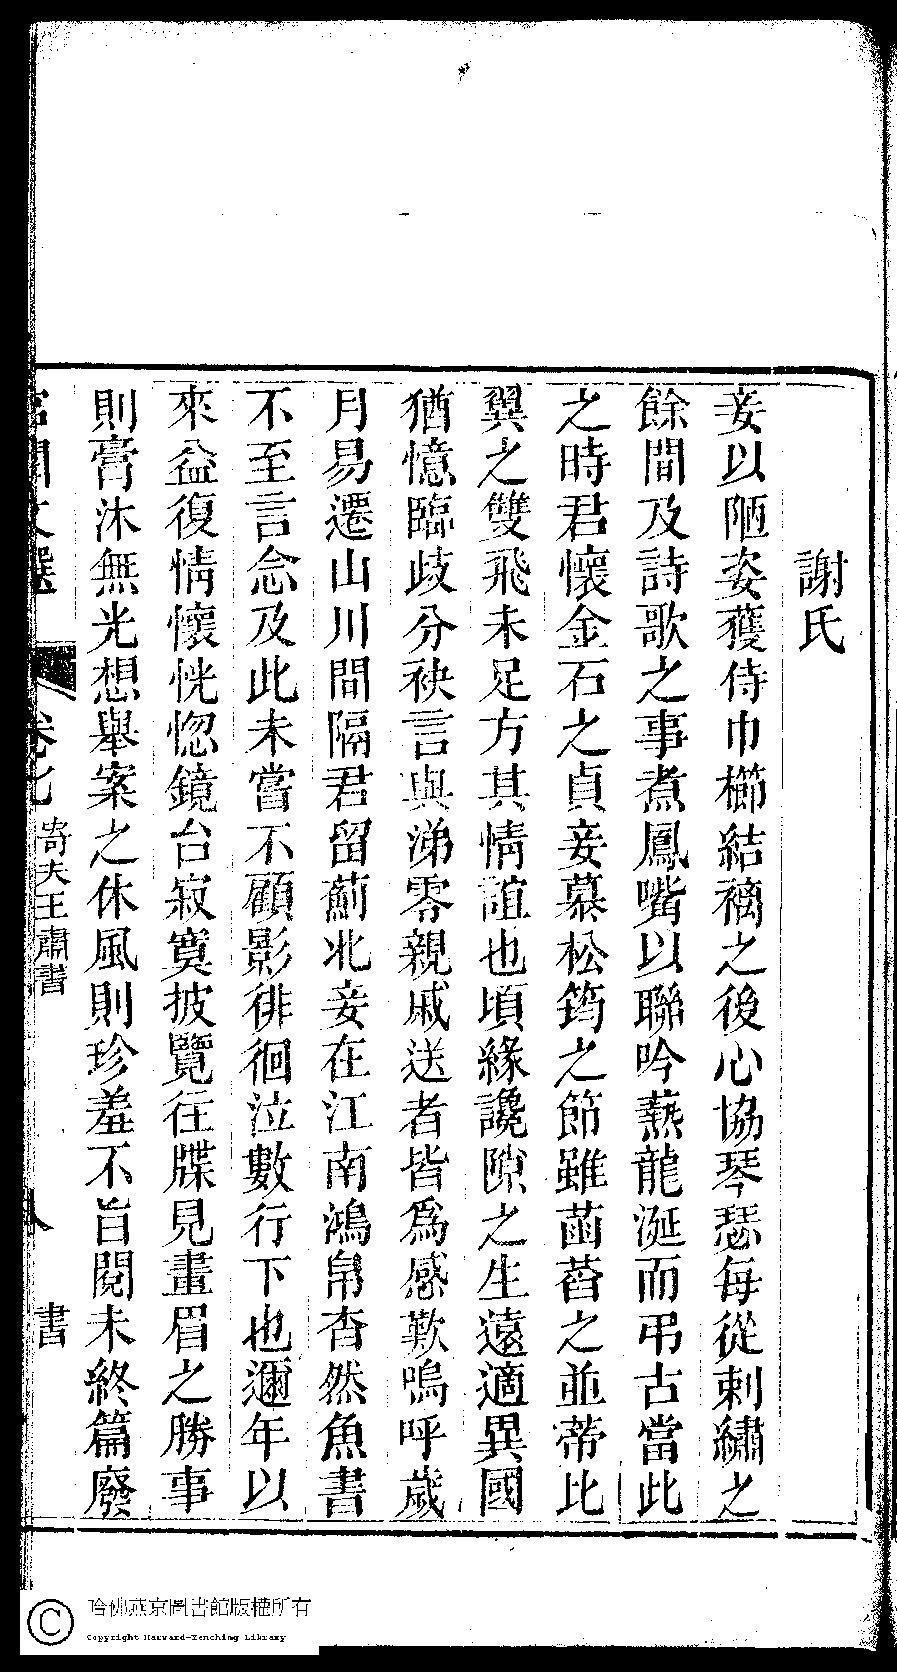 謝氏
妾以陋姿獲侍巾櫛結褵之後心協琴瑟每從刺繡之
餘間及詩歌之事煮鳳嘴以聯吟爇龍涎而弔古當此
之時君懷金石之貞妾慕松筠之節雖菡萏之並蒂比
翼之雙飛未足方其情誼也頃緣讒隙之生遠適異國
猶憶臨歧分袂言與涕零親戚送者皆爲感歎嗚呼歲
月易遷山川間隔君留薊北妾在江南鴻帛杳然魚書
不至言念及此未嘗不顧影徘徊泣數行下也邇年以
來益復情懷恍惚鏡台寂寞披覽往牒見畫眉之勝事
則膏沐無光想舉案之休風則珍羞不旨閱未終篇廢
宮閨文選 卷七 寄夫王肅書 八 書
哈佛燕京圖書館版權所有
Copyright Harvard-Yenching Library